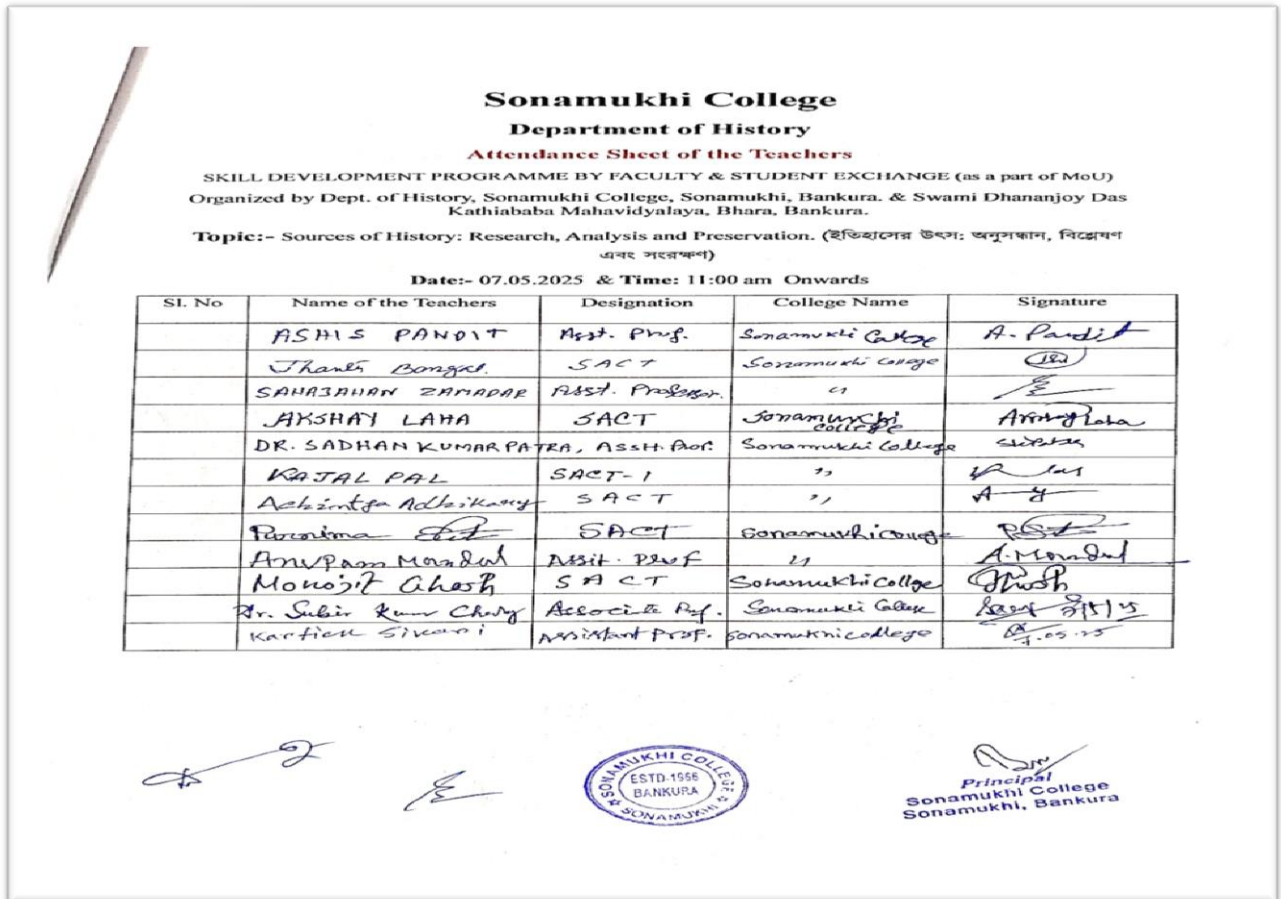 Sonamukhi College
Department of History
Attendance Sheet of the Teachers
SKILL DEVELOPMENT PROGRAMME BY FACULTY & STUDENT EXCHANGE (as a part of MoU)
Organized by Dept. of History, Sonamukhi College, Sonamukhi, Bankura. & Swami Dhananjoy Das
Kathiababa Mahavidyalaya, Bhara, Bankura.
Topic:- Sources of History: Research, Analysis and Preservation. (ইতিহাসের উৎস: অনুসন্ধান, বিশ্লেষণ
এবং সংরক্ষণ)
Date:- 07.05.2025 & Time: 11:00 am Onwards
Sl. No Name of the Teachers Designation College Name Signature
ASHIS PANDIT Asst. Prof. Sonamukhi College A. Pandit
SACT Sonamukhi College
SAHAJAHAN ZAMADAR Asst. Professor. "
AKSHAY LAHA SACT Sonamukhi College
DR. SADHAN KUMAR PATRA, Asstt. Prof. Sonamukhi College
KAJAL PAL SACT-1 "
Achintya Adhikary SACT "
Purnima SACT Sonamukhi College
Anupam Mondal Assit. Prof " A. Mondal
Monojit Ghosh SACT Sonamukhi College Ghosh
Dr. Subir Kumar Associate Prof. Sonamukhi College
Kartick Assistant Prof. Sonamukhi college 7.05.25
SONAMUKHI COLLEGE
ESTD-1966
BANKURA
SONAMUKHI
Principal
Sonamukhi College
Sonamukhi, Bankura